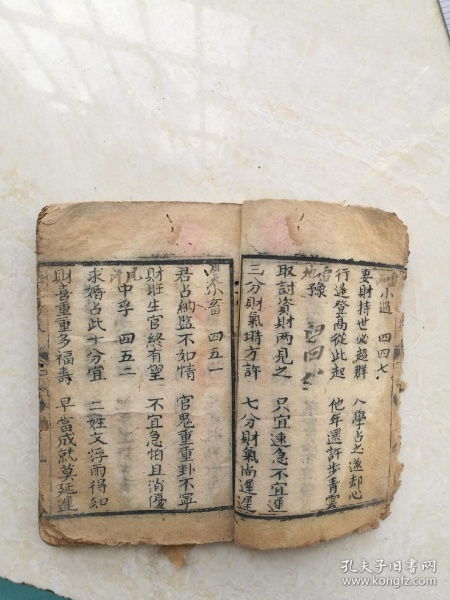 小過 四四七
妻財持世必超群 入學占之遂却心
行達登高從此起 他年還許步青雲
雷地豫 四四
取討資財两見之 只宜速急不宜遲
三分財氣時方許 七分財氣尚遲遲
小畜 四五一
君占納監不如情 官鬼重重卦不寧
財旺生官終有望 不宜急怕且消優
中孚 四五二
求婚占此十分宜 二姓文浮雨得知
財喜重重多福壽 早當成就莫延遲
孔夫子旧书网
www.kongfz.com